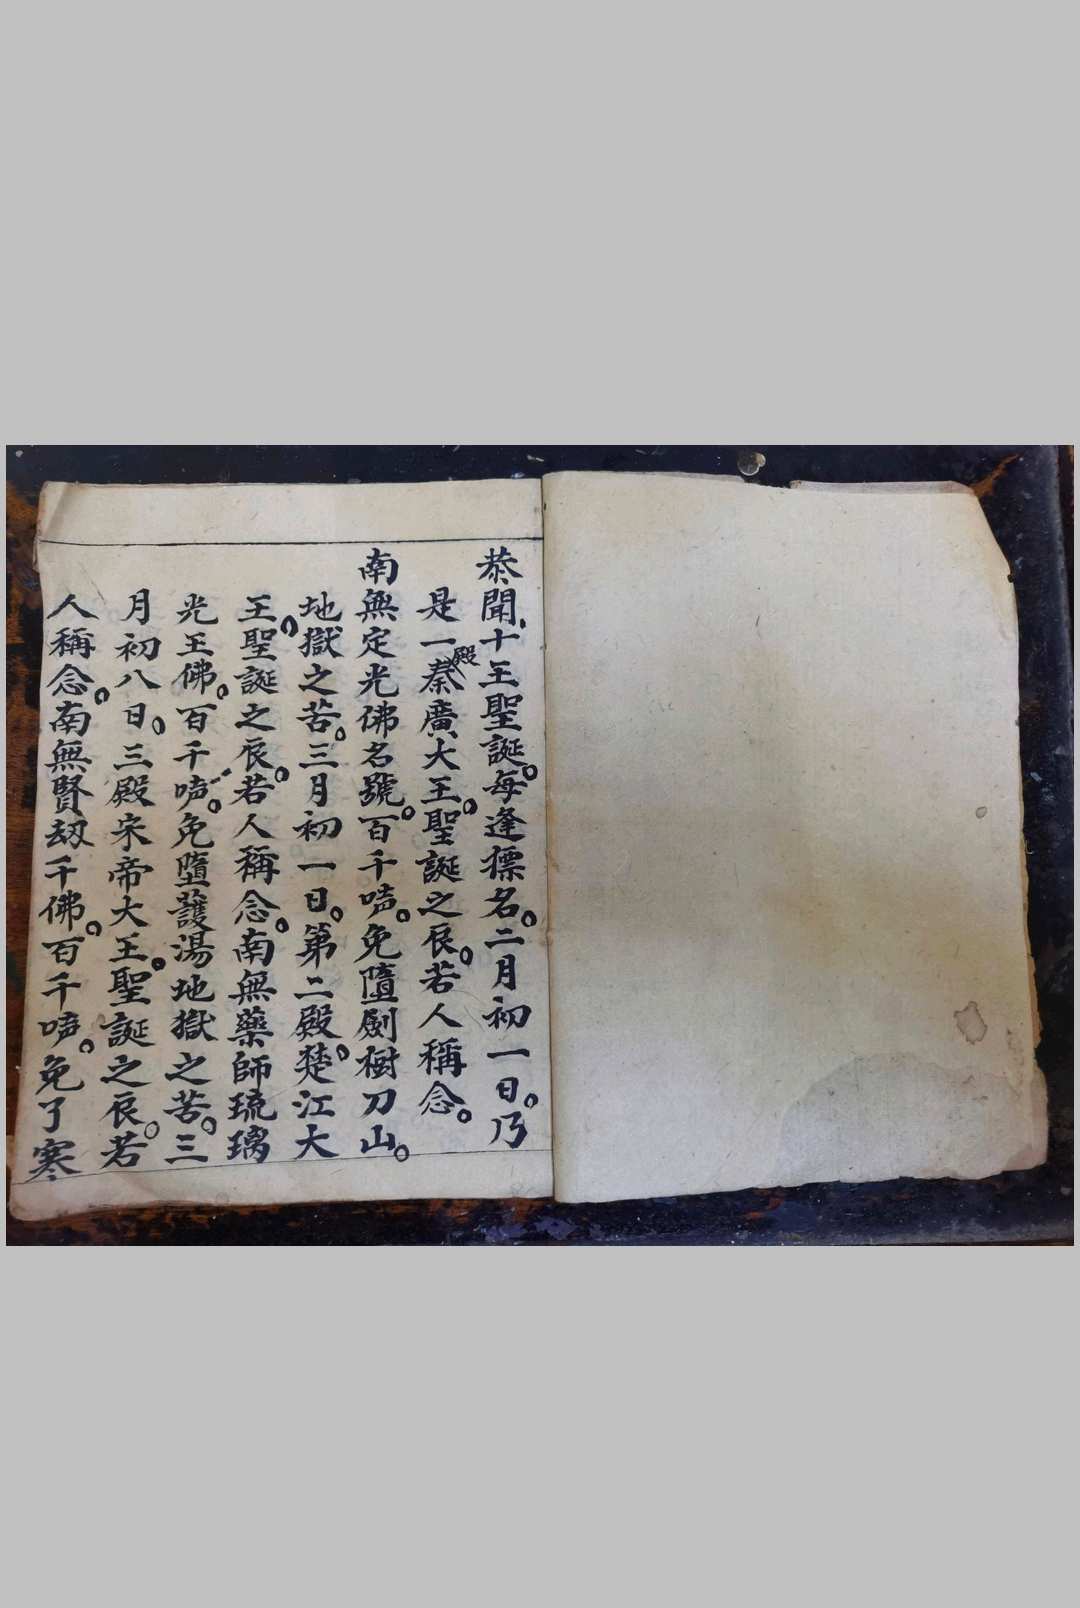 恭聞十王聖誕。每逢標名。二月初一日。乃
是一殿秦廣大王。聖誕之辰。若人稱念。
南無定光佛名號。百千唪。免墮劍樹刀山。
地獄之苦。三月初一日。第二殿楚江大
王。聖誕之辰。若人稱念。南無藥師琉璃
光王佛。百千唪。免墮護湯地獄之苦。三
月初八日。三殿宋帝大王。聖誕之辰。若
人稱念。南無賢劫千佛。百千唪。免了寒